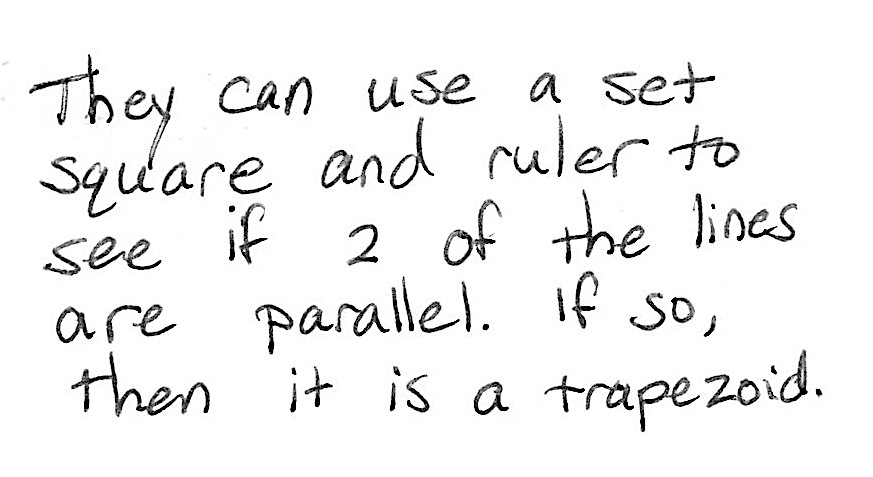 They can use a set
square and ruler to
see if 2 of the lines
are parallel. If so,
then it is a trapezoid.